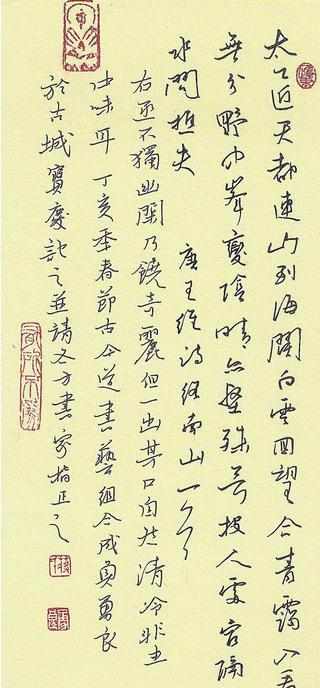 太乙近天都連山到海隅白雲回望合青靄入
無分野中峯變陰晴众壑殊投人處宿隔
水問樵夫 唐王維詩終南山一首
右丞不獨幽閑乃饒奇麗但一出其口自然清冷非世
中味耳 丁亥年春節古今道書藝組合成員勇良
於古城寶慶記之並請各方書家指正之